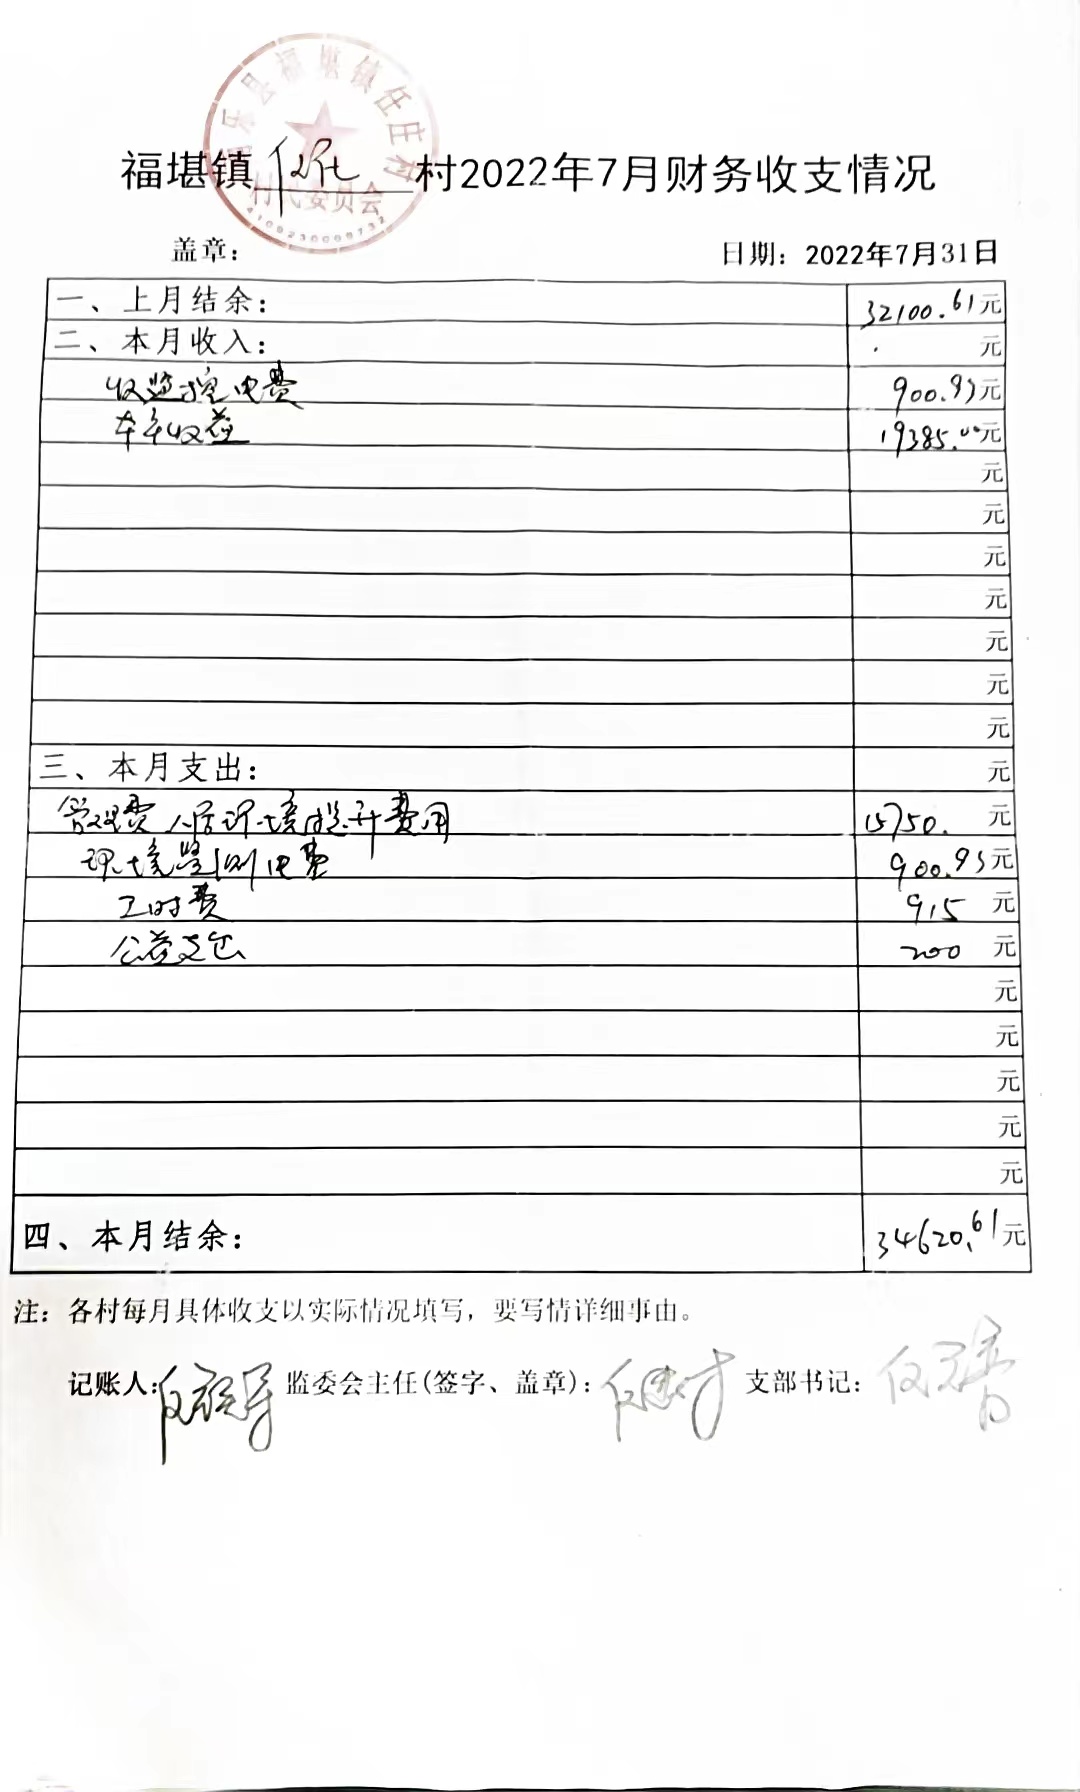 南乐县福堪镇任庄村
村民委员会
4109230009732
福堪镇任庄村2022年7月财务收支情况
盖章： 日期：2022年7月31日
一、上月结余： 32100.61元
二、本月收入： 元
收监控电费 900.93元
本年收益 19385.00元
元
元
元
元
元
元
元
三、本月支出： 元
管理费 人居环境提升费用 15750. 元
环境监测电费 900.93元
工时费 915 元
公益支出 200 元
元
元
元
元
元
四、本月结余： 34620.61元
注：各村每月具体收支以实际情况填写，要写情详细事由。
记账人： 监委会主任(签字、盖章)： 支部书记：